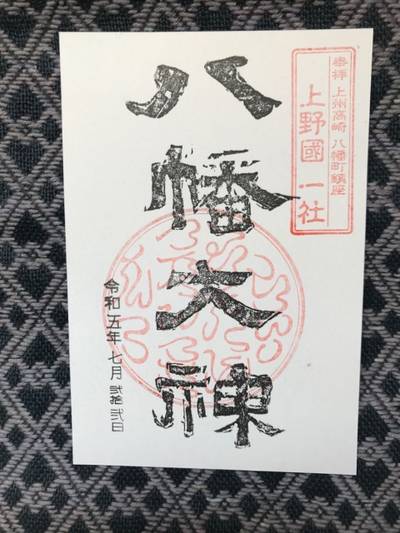 奉拝 上州高崎 八幡町鎮座
上野國一社
八幡大神
令和五年七月弐拾弐日